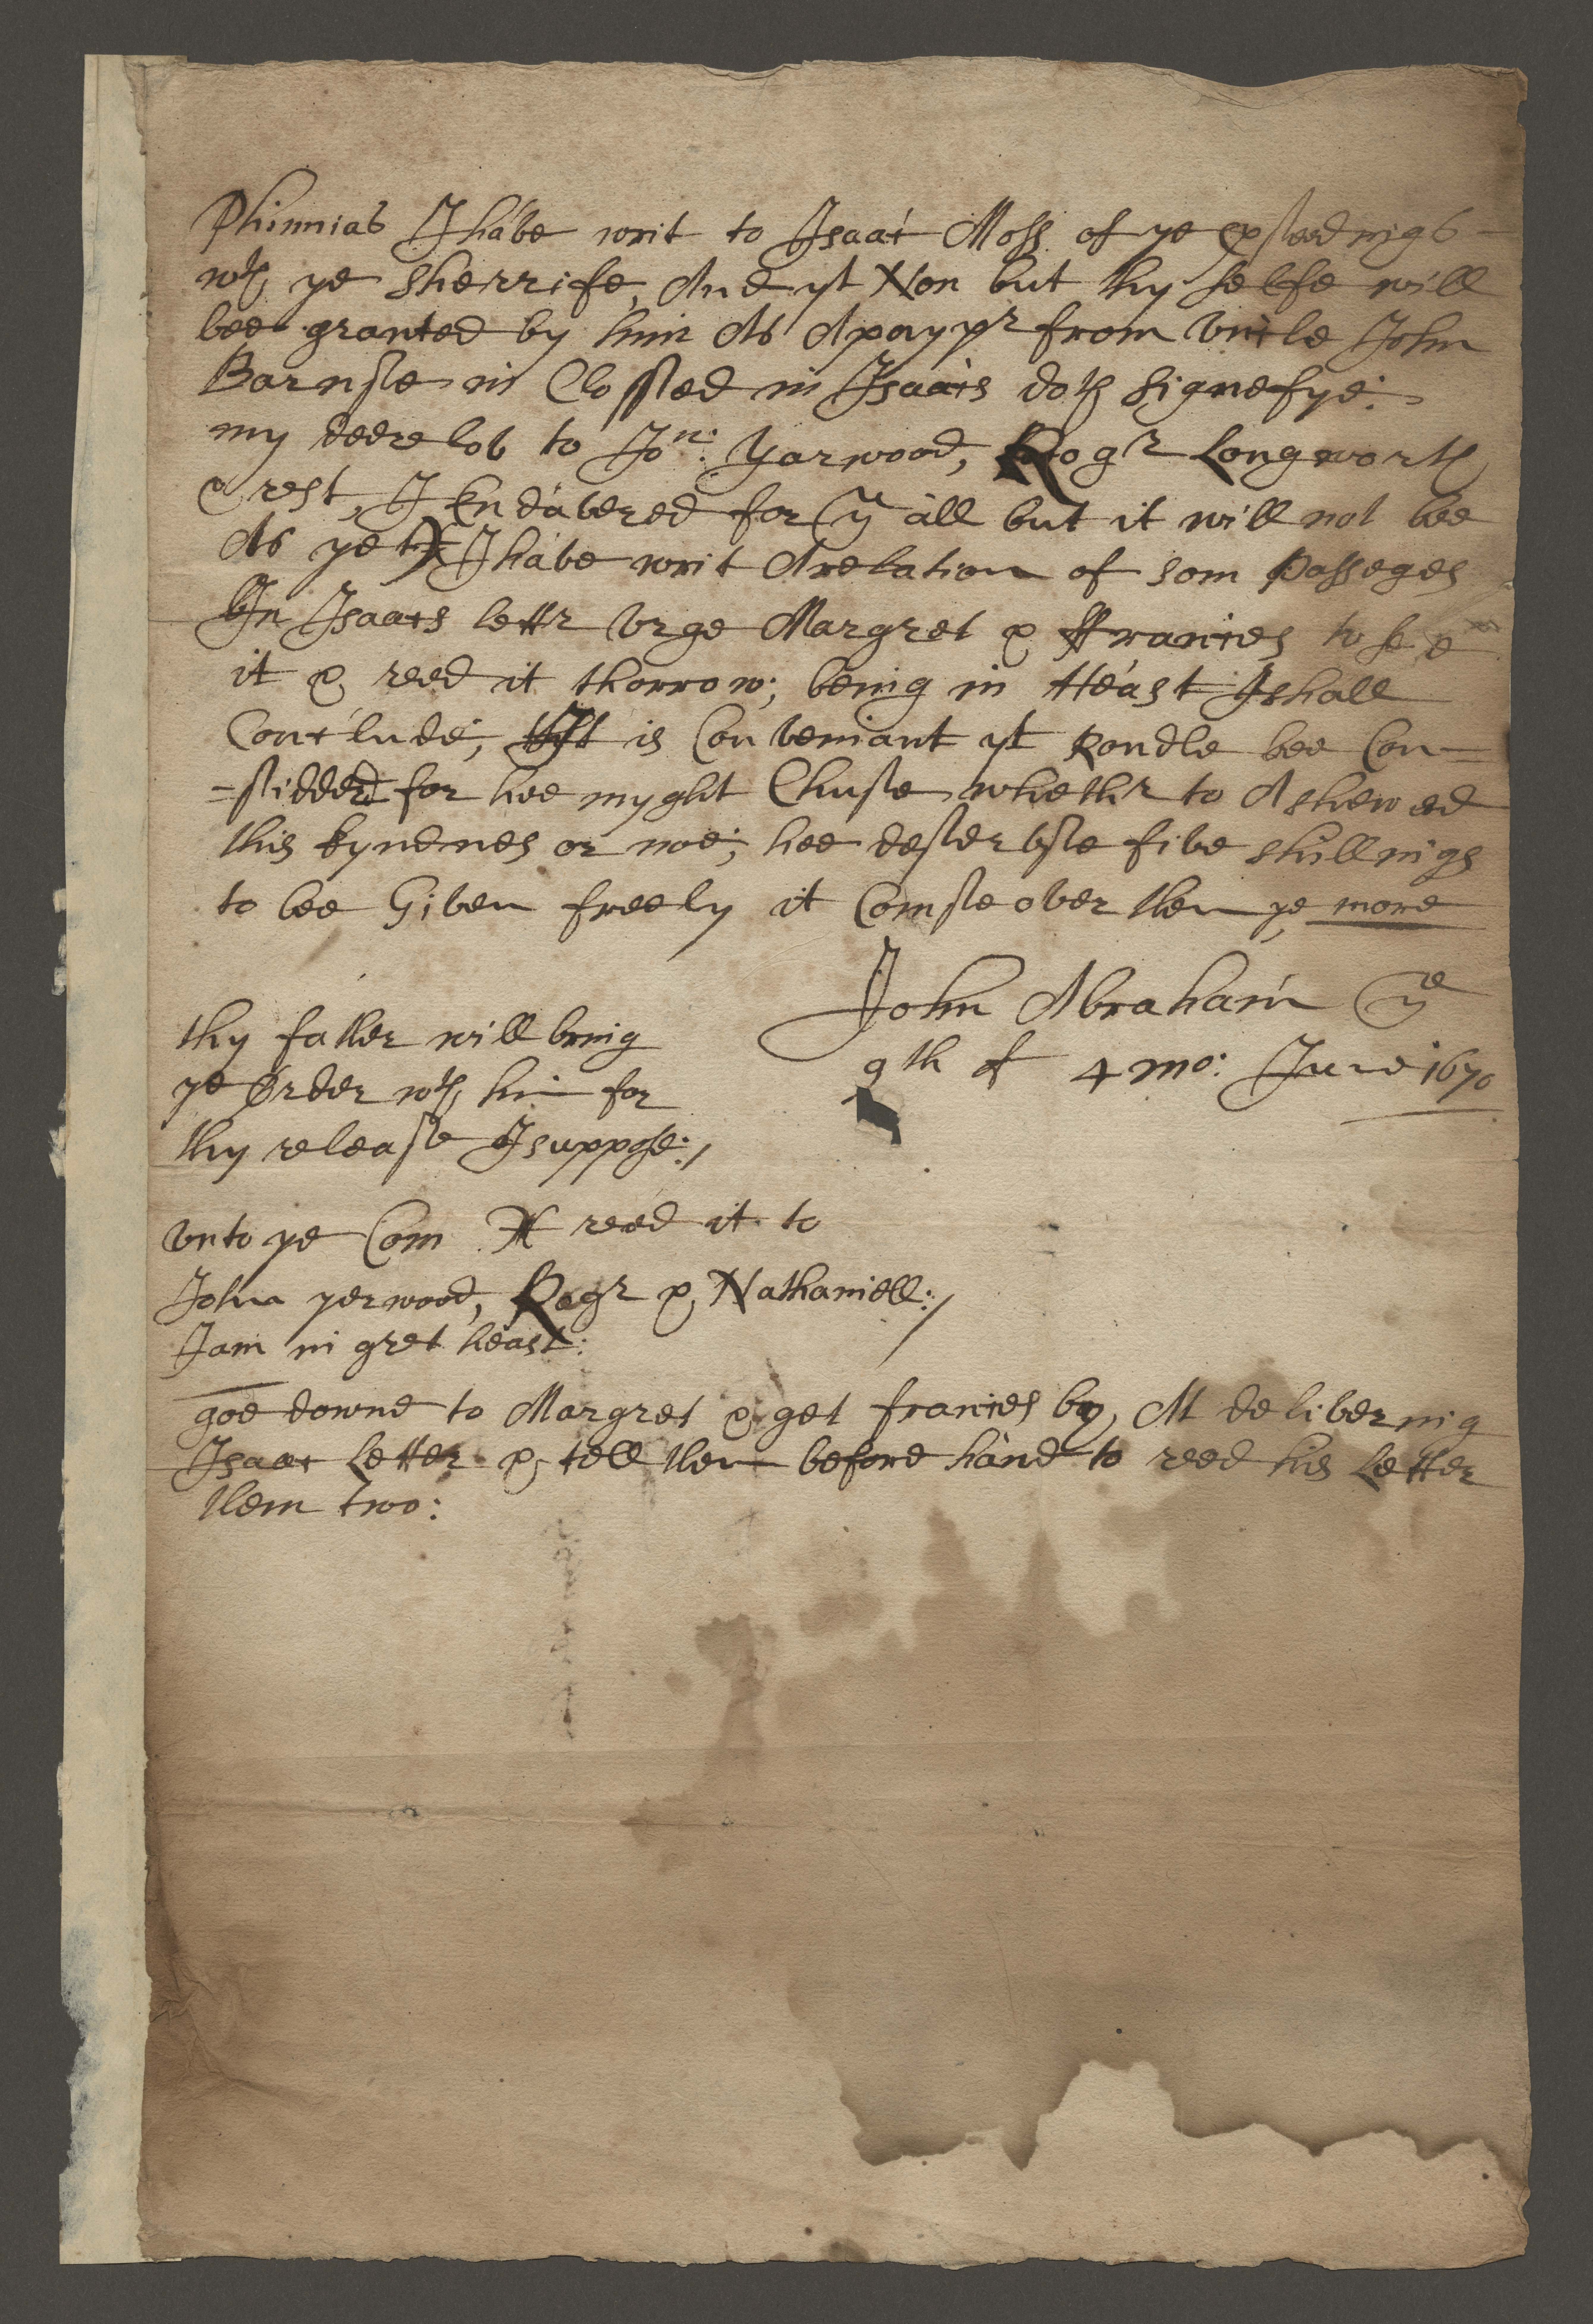 Phinnias I have writ to Isaac Moss of ye pseedings
wth ye sherrife, And yt Non but thy selfe will
bee granted by him As A paypr from Uncle John
Barnse in Clossed in Isaacs doth signefye:
my deere lov to Jon: Yarwood, Rogr Longworth
& rest, I Endavered for ym all but it will not bee
As yet I have writ A relation of som Passeges
In Isaacs lettr Urge Margret & ffrances to see
it & reed it thorrow; being in Heast I shall
Conclude, It is Conveniant yt Rondle bee Con=
=sidderd for hee myght Chuse whethr to A shewed
this kyndnes or noe; hee deservse five shillings
to bee Given freely it Comse over then ye more
John Abraham ye
9th of 4 mo: June 1670
thy father will bring
ye Order wth him for
thy release I suppose:/
Unto ye Com reed it to
John yerwood, Rogr & Nathaniell:/
I am in gret heast:
goe downe to Margret & get frances by, At delivering
Isaac Letter & tell them before hand to reed his Letter
them two: